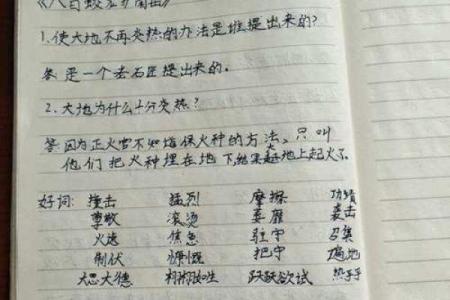 1.使大地不再炎热的办法是谁提出来的?
答 是一个老石匠提出来的。
2.大地为什么十分炎热?
答 因为正火官不知道保火种的方法、只叫
他们把火种埋在地下,结果地上起火了
好词: 撞击 猛烈 摩擦 功绩
尊敬 滚烫 袭击
火速 焦急 驻守 召集
制伏 慷慨 把守 遍地
大恩大德 栩栩如生 跃跃欲试 热乎乎